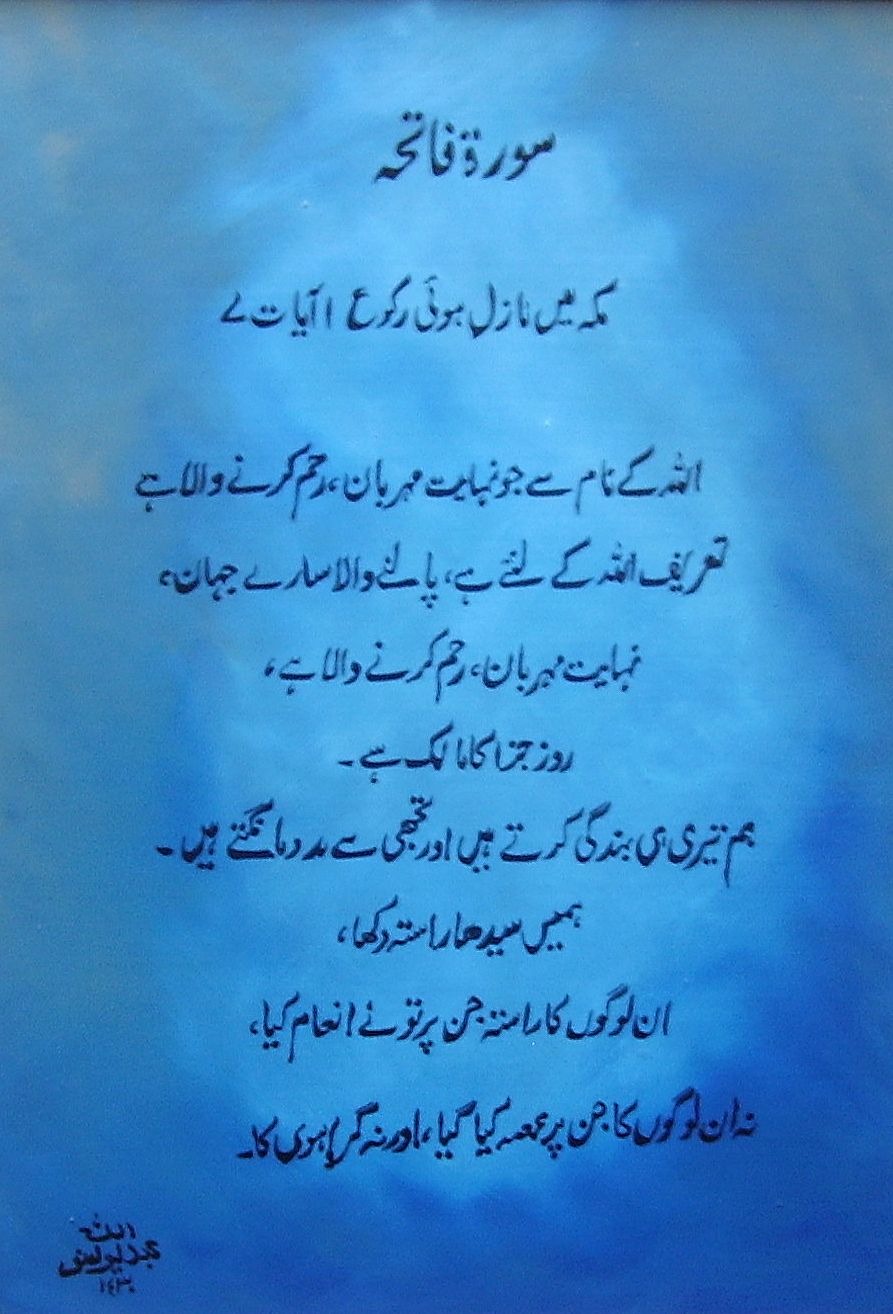 سورۃ فاتحہ
مکہ میں نازل ہوئی رکوع ۱ آیات ۷
اللہ کے نام سے جو نہایت مہربان، رحم کرنے والا ہے
تعریف اللہ کے لئے ہے، پالنے والا سارے جہان،
نہایت مہربان، رحم کرنے والا ہے،
روز جزا کا مالک ہے۔
ہم تیری ہی بندگی کرتے ہیں اور تجھی سے مدد مانگتے ہیں۔
ہمیں سیدھا راستہ دکھا،
ان لوگوں کا راستہ جن پر تو نے انعام کیا،
نہ ان لوگوں کا جن پر غصہ کیا گیا، اور نہ گمراہوں کا۔